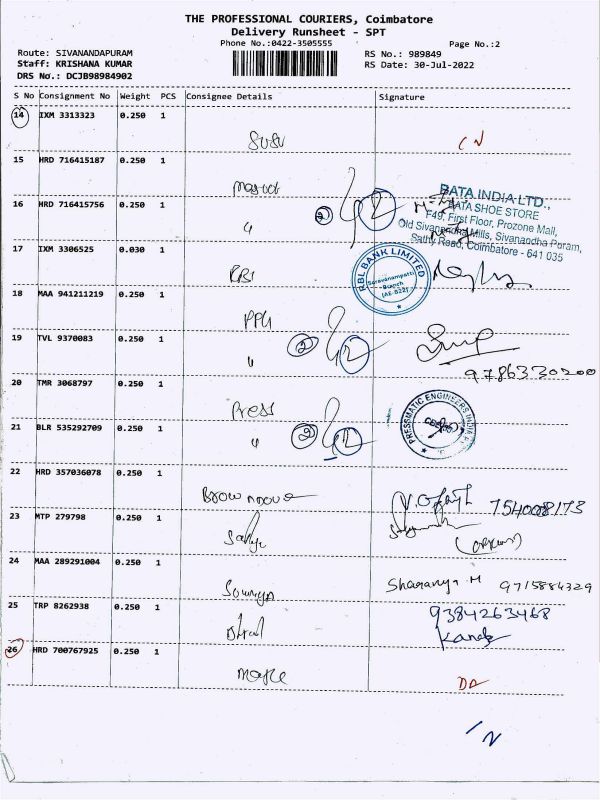 THE PROFESSIONAL COURIERS, Coimbatore
Delivery Runsheet - SPT
Phone No.:0422-3505555
Page No.:2
Route: SIVANANDAPURAM
Staff: KRISHANA KUMAR
DRS No.: DCJB98984902
RS No.: 989849
RS Date: 30-Jul-2022
S No Consignment No Weight PCS Consignee Details Signature
14 IXM 3313323 0.250 1
SUSU
15 HRD 716415187 0.250 1
16 HRD 716415756 0.250 1
2 2
BATA INDIA LTD.,
BATA SHOE STORE
F49, First Floor, Prozone Mall,
Old Sivanandha Mills, Sivanandha Puram,
Sathy Road, Coimbatore - 641 035
17 IXM 3306525 0.030 1
RBL
RBL BANK LIMITED
Saravanampatti
Branch
(AE-822)
18 MAA 941211219 0.250 1
PPG
19 TVL 9370083 0.250 1
2 2
9786330200
20 TMR 3068797 0.250 1
Press
21 BLR 535292709 0.250 1
2 2
PRESSMATIC ENGINEERS INDIA
22 HRD 357036078 0.250 1
754008173
23 MTP 279798 0.250 1
24 MAA 289291004 0.250 1
Sowmya
Sharanya M 9715884329
25 TRP 8262938 0.250 1
9384263468
26 HRD 700767925 0.250 1
DA